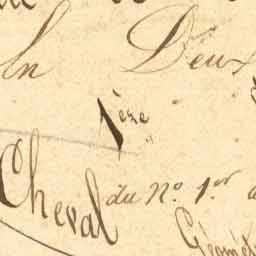 En Deux
1ère
Cheval
du No. 1er a
Géomét